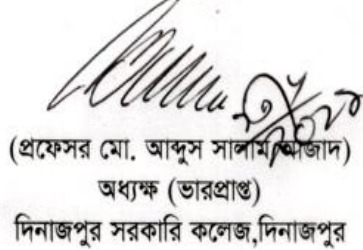 (প্রফেসর মো. আব্দুস সালাম আজাদ)
অধ্যক্ষ (ভারপ্রাপ্ত)
দিনাজপুর সরকারি কলেজ,দিনাজপুর